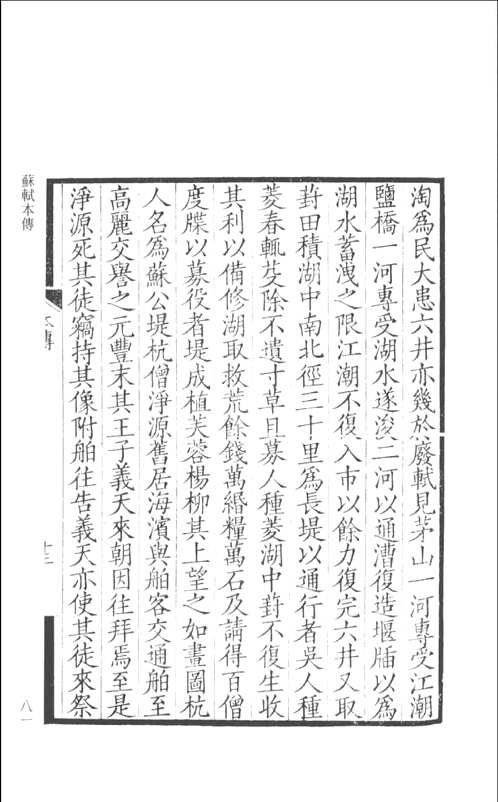 淘爲民大患六井亦幾於廢軾見茅山一河專受江潮
鹽橋一河專受湖水遂浚二河以通漕復造堰牐以爲
湖水蓄洩之限江潮不復入市以餘力復完六井又取
葑田積湖中南北徑三十里爲長堤以通行者吳人種
菱春輒芟除不遺寸草且募人種菱湖中葑不復生收
其利以備修湖取救荒餘錢萬緡糧萬石及請得百僧
度牒以募役者堤成植芙蓉楊柳其上望之如畫圖杭
人名爲蘇公堤杭僧淨源舊居海濱與舶客交通舶至
高麗交譽之元豐末其王子義天來朝因往拜焉至是
淨源死其徒竊持其像附舶往告義天亦使其徒來祭
蘇軾本傳
本傳
十三
八一